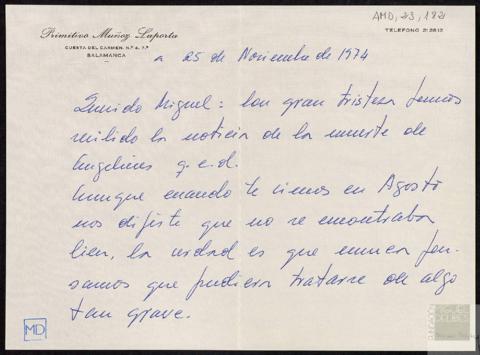 AMD, 23, 182
Primitivo Muñoz Laporta
CUESTA DEL CARMEN, N.º 4, 7.º
SALAMANCA
TELEFONO 212812
a 25 de Noviembre de 1974
Querido Miguel: Con gran tristeza hemos
recibido la noticia de la muerte de
Angelines q.e.d.
Aunque cuando te vimos en Agosto
nos dijiste que no se encontraba
bien, la verdad es que nunca pen-
samos que pudiera tratarse de algo
tan grave.
MD